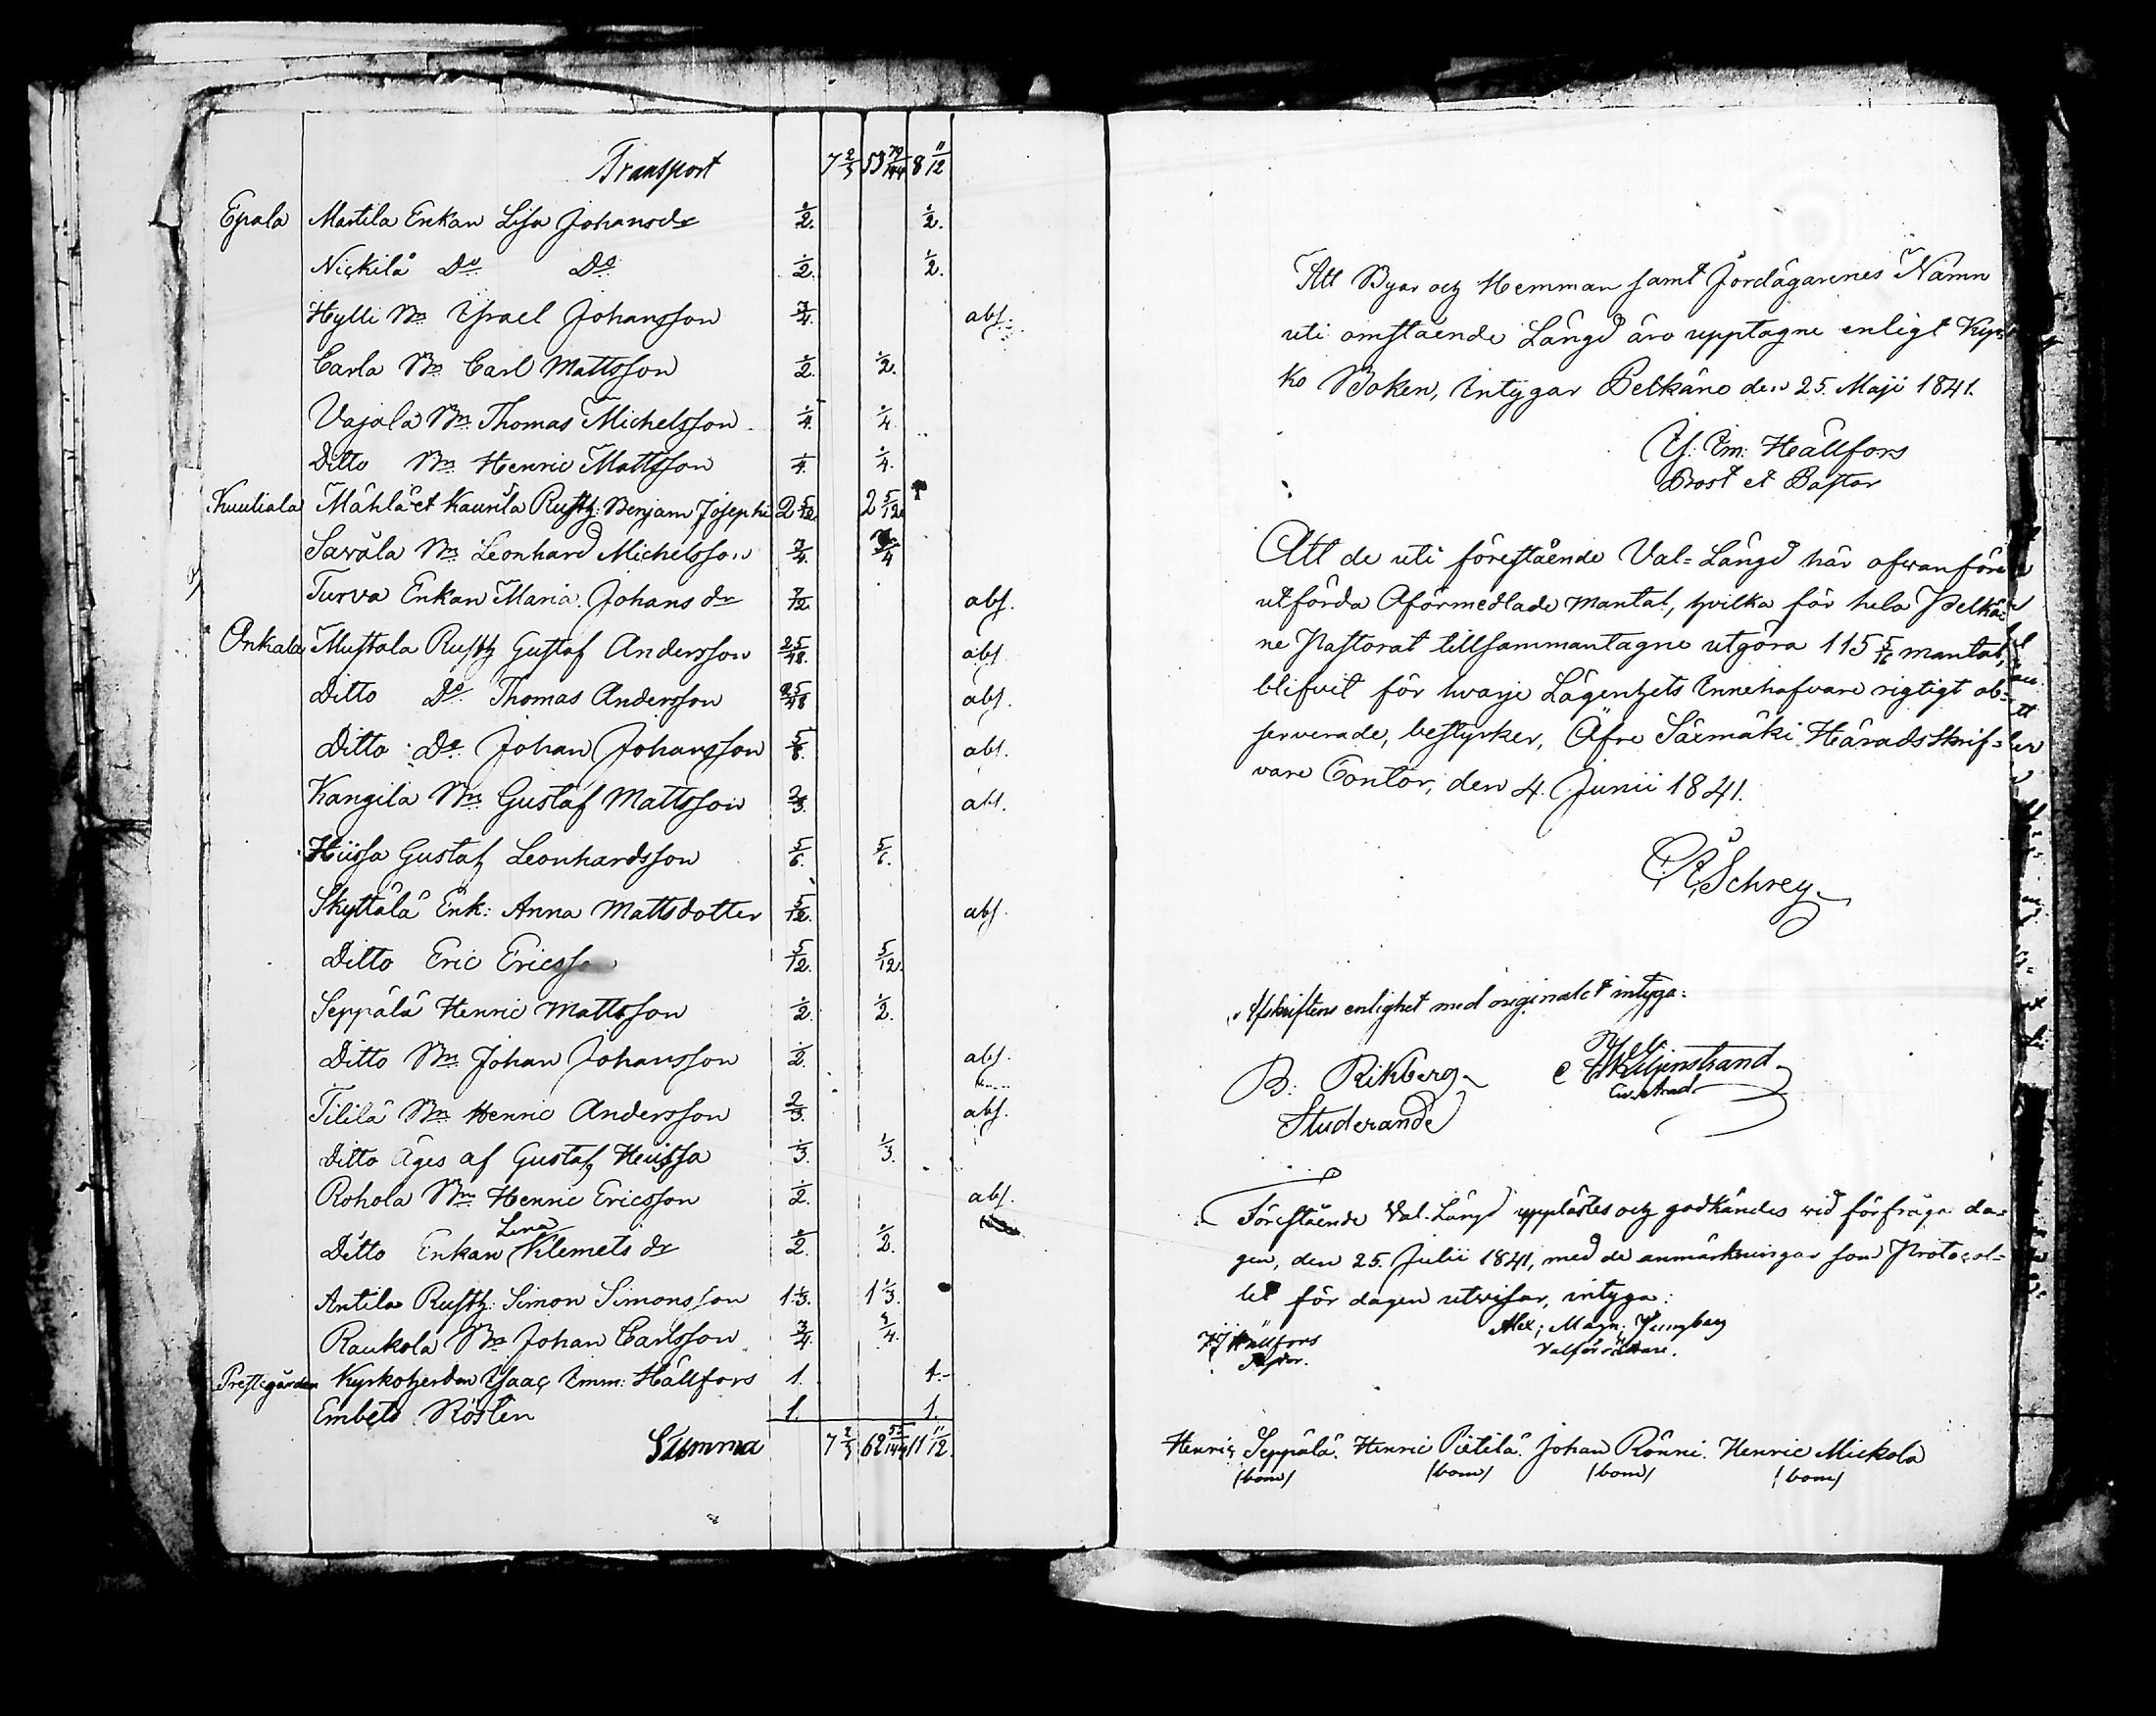 Transport 7 2/3 53 79/144 8 11/12
Epala Martila Enkan Lisa Johansdr 1/2. 1/2.
Nickilä Do Do 1/2. 1/2.
Hylli Bn Ysrael Johansson 3/4. abs.
Carla Bn Carl Mattsson 1/2. 1/2.
Vajola Bn Thomas Michelsson 1/4. 1/4
Ditto Bn Henric Mattsson 1/4. 1/4.
Kuuliala Mähkä et Kaurila Rusth: Benjam Josephi 2 5/12. 2 5/12.
Saväla Bn Leonhard Michelsson 3/4. 3/4
Turva Enkan Maria Johans dr 7/12. abs.
Onkala Mustala Rusth Gustaf Andersson 25/48. abs
Ditto Do Thomas Andersson 25/48 abs.
Ditto Do Johan Johansson 5/8. abs.
Kangila Bn Gustaf Mattsson 2/3. abs.
Hiissa Gustaf Leonhardsson 5/6. 5/6.
Skyttälä Enk: Anna Mattsdotter 5/12. abs.
Ditto Eric Ericsson 5/12. 5/12.
Seppälä Henric Mattsson 1/2. 1/2.
Ditto Bn Johan Johansson 1/2. abs.
Tililä Bn Henric Andersson 2/3. abs.
Ditto äges af Gustaf Heissa 1/3. 1/3.
Rohola Bn Henric Ericsson 1/2. abs.
Lena
Ditto Enkan Klemets dr 1/2. 1/2.
Antila Rusth: Simon Simonsson 1 1/3. 1 1/3.
Raukola Bn Johan Carlsson 3/4. 3/4.
Prestegården Kyrkoherden Ysaac Imm: Hällfors 1. 1.-
Embets Rösten 1. 1.
Summa 7 2/3 62 55/144 11 11/12.
Att Byar och Hemman samt Jordägarenes Namn
uti omstående Längd äro upptagne enligt Kyr=
ko Boken, intygar Pelkäne den 25. Maji 1841.
Y: Im: Hällfors
Prost et Pastor
Att de uti förestående Val=Längd här ofvanföre
utförda Oförmedlade mantal, hvilka för hela Pelkä=
ne Pastorat tillsammantagne utgöra 115 5/16 mantal,
blifvit för hvarje Lägenhets Innehafvare rigtigt ob=
serverade, bestyrker, Öfre Säxmäki Häradsskrif=
vare Contor, den 4. Junii 1841.
C R Schrey
Afskriftens enlighet med originalet intyga:
B: Rikberg
Studerande
Förestående Val-Längd upplästes och godkändes vid förfråge da=
gen, den 25. Julii 1841, med de anmärkningar som Protocol=
let för dagen utvisar, intyga:
Alex: Magn: Ljungberg
Hällfors
Valförrättare.
Pastor.
Henric Seppälä. Henric Pietilä. Johan Rönni. Henric Mickola
(bom) (bom) (bom) (bom)